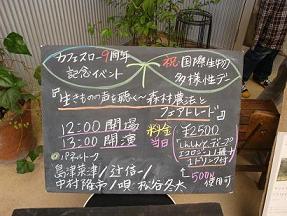 カフェスロー9周年
記念イベント
祝 国際生物
多様性デー
『生きものの声を聴く〜森村農法と
フェアトレード』
12:00 開場
13:00 開演
料金 ¥2500
当日
1ドリンク付
パネルトーク
島津菜津/辻信一/
中村隆市/唄 松谷冬太
500 使用可